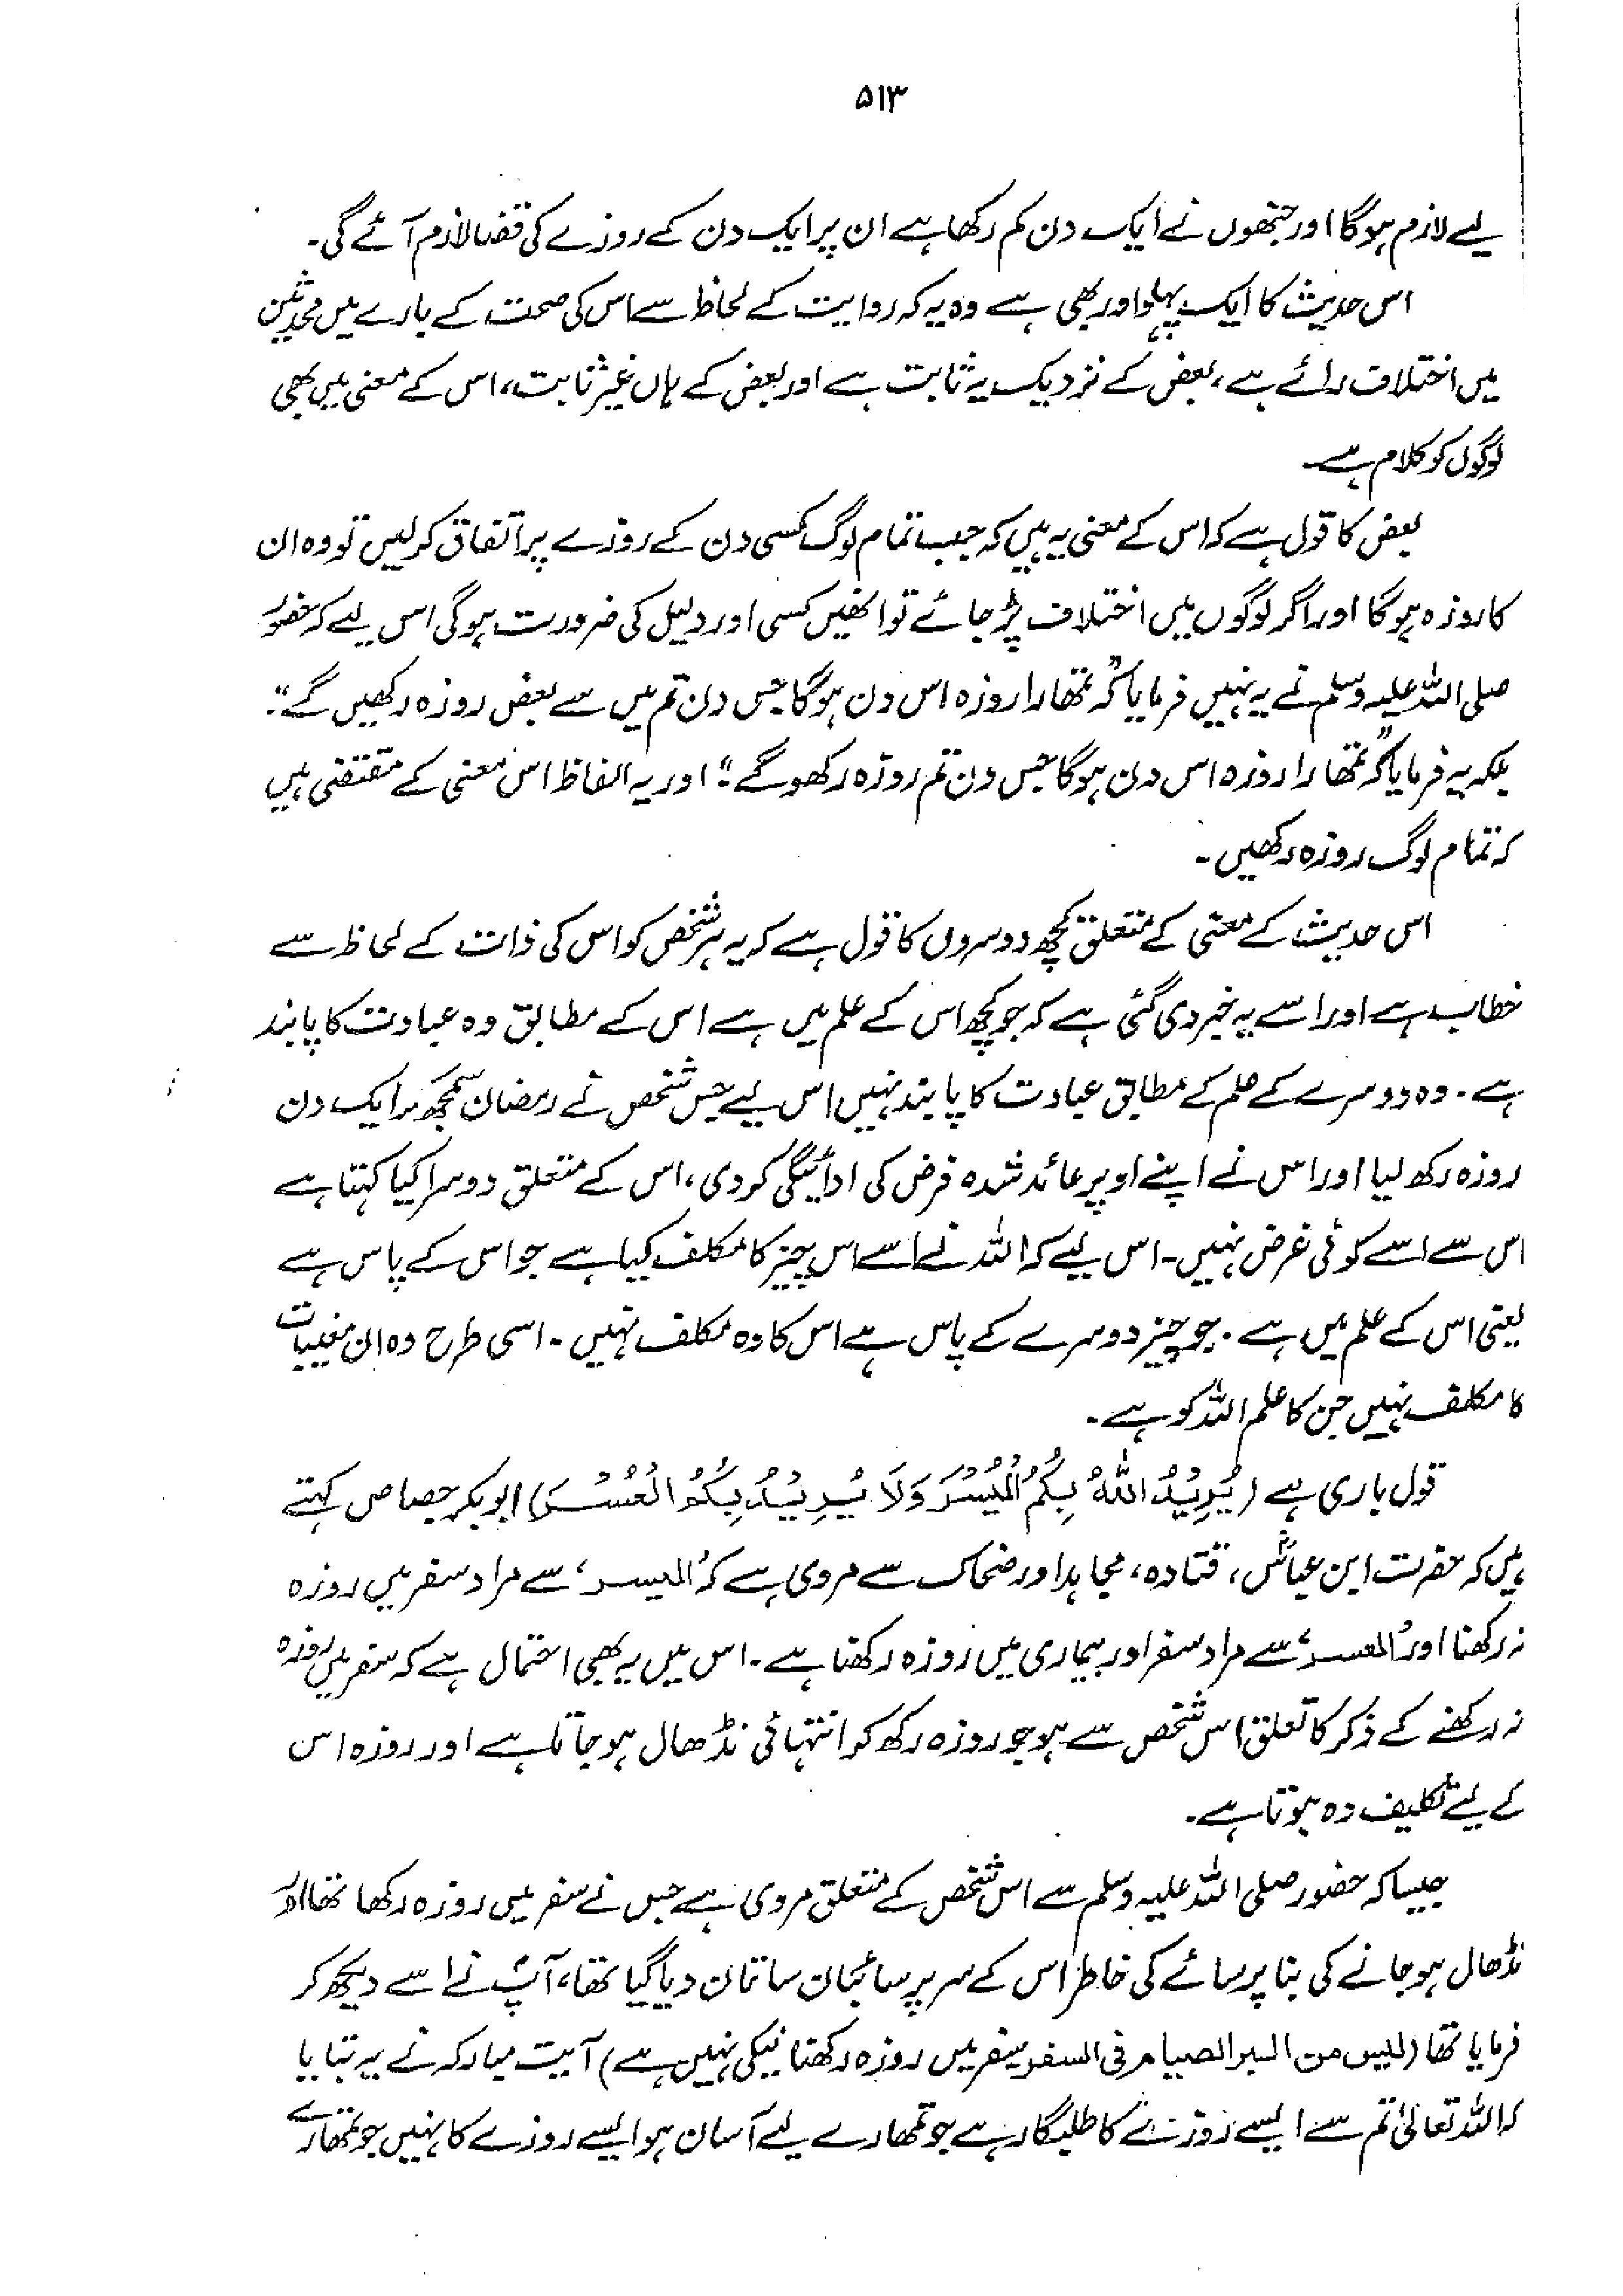 ۵۱۳
لیے لازم ہوگا اور جنھوں نے ایک دن کم رکھا ہے ان پر ایک دن کے روزے کی قضا لازم آئے گی۔
اس حدیث کا ایک پہلو اور بھی ہے وہ یہ کہ روایت کے لحاظ سے اس کی صحت کے بارے میں محدثین
میں اختلاف رائے ہے، بعض کے نزدیک یہ ثابت ہے اور بعض کے ہاں غیر ثابت، اس کے معنی میں بھی
لوگوں کو کلام ہے۔
بعض کا قول ہے کہ اس کے معنی یہ ہیں کہ جب تمام لوگ کسی دن کے روزے پر اتفاق کر لیں تو وہ ان
کا روزہ ہوگا اور اگر لوگوں میں اختلاف پڑ جائے تو انھیں کسی اور دلیل کی ضرورت ہوگی اس لیے کہ حضور
صلی اللہ علیہ وسلم نے یہ نہیں فرمایا کہ "تمھارا روزہ اس دن ہوگا جس دن تم میں سے بعض روزہ رکھیں گے"۔
بلکہ یہ فرمایا کہ "تمھارا روزہ اس دن ہوگا جس دن تم روزہ رکھو گے"؛ اور یہ الفاظ اس معنی کے مقتضی ہیں
کہ تمام لوگ روزہ رکھیں۔
اس حدیث کے معنی کے متعلق کچھ دوسروں کا قول ہے کہ یہ ہر شخص کو اس کی ذات کے لحاظ سے
خطاب ہے اور اسے یہ خبر دی گئی ہے کہ جو کچھ اس کے علم میں ہے اس کے مطابق وہ عبادت کا پابند
ہے۔ وہ دوسرے کے علم کے مطابق عبادت کا پابند نہیں اس لیے جس شخص نے رمضان سمجھ کر ایک دن
روزہ رکھ لیا اور اس نے اپنے اوپر عائد شدہ فرض کی ادائیگی کر دی، اس کے متعلق دوسرا کیا کہتا ہے
اس سے اسے کوئی غرض نہیں۔ اس لیے کہ اللہ نے اسے اس چیز کا مکلف کیا ہے جو اس کے پاس ہے
یعنی اس کے علم میں ہے۔ جو چیز دوسرے کے پاس ہے اس کا وہ مکلف نہیں۔ اسی طرح وہ ان مغیبات
کا مکلف نہیں جن کا علم اللہ کو ہے۔
قول باری ہے (يُرِيْدُ اللّٰهُ بِكُمُ الْيُسْرَ وَلَا يُرِيْدُ بِكُمُ الْعُسْرَ) ابو بکر جصاص کہتے
ہیں کہ حضرت ابن عباسؓ، قتادہ، مجاہد اور ضحاک سے مروی ہے کہ 'الیسر' سے مراد سفر میں روزہ
نہ رکھنا اور 'العسر' سے مراد سفر اور بیماری میں روزہ رکھنا ہے۔ اس میں یہ بھی احتمال ہے کہ سفر میں روزہ
نہ رکھنے کے ذکر کا تعلق اس شخص سے ہو جو روزہ رکھ کر انتہائی نڈھال ہو جاتا ہے اور روزہ اس
کے لیے تکلیف دہ ہوتا ہے۔
جیسا کہ حضور صلی اللہ علیہ وسلم سے اس شخص کے متعلق مروی ہے جس نے سفر میں روزہ رکھا تھا اور
نڈھال ہو جانے کی بنا پر سائے کی خاطر اس کے سر پر سائبان سا تان دیا گیا تھا، آپؐ نے اسے دیکھ کر
فرمایا تھا (لیس من البر الصیام فی السفر سفر میں روزہ رکھنا نیکی نہیں ہے) آیت مبارکہ نے یہ بتایا
کہ اللہ تعالیٰ تم سے ایسے روزے کا طلبگار ہے جو تمھارے لیے آسان ہو ایسے روزے کا نہیں جو تمھارے